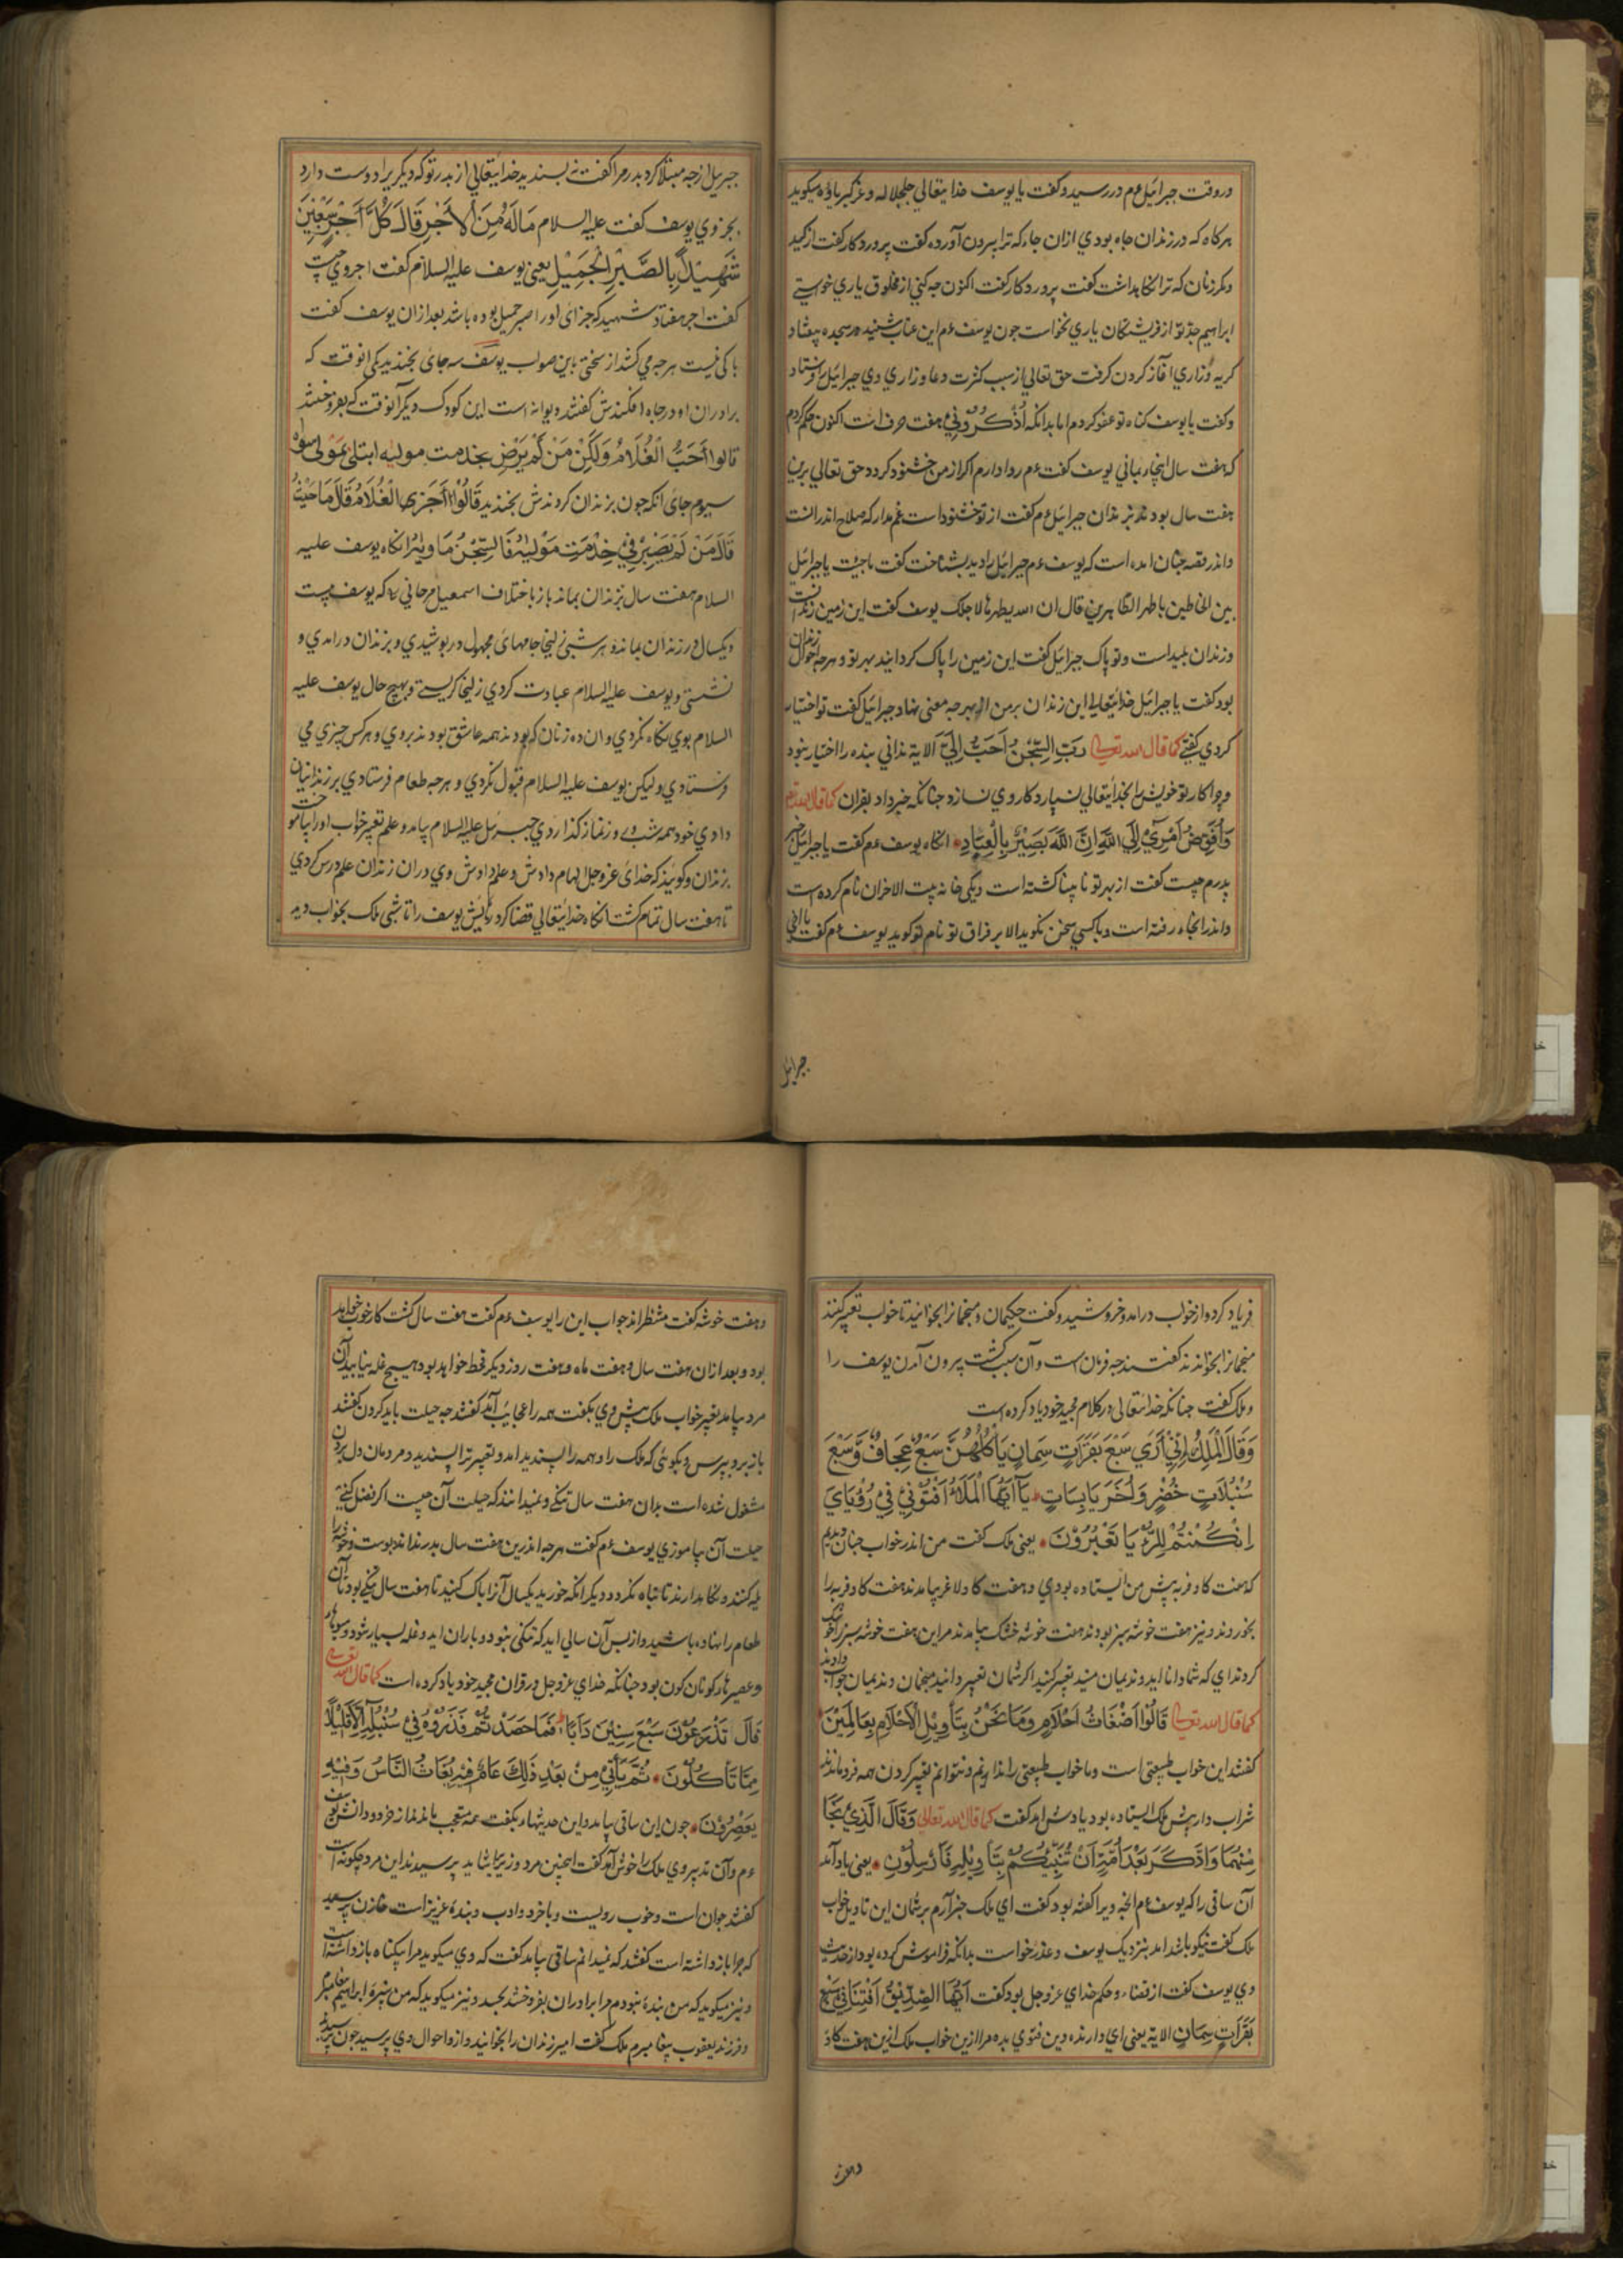 دروقت جبرائیل ءم در رسید و گفت یا یوسف خدایتعالی جلجلاله و عز کبریاؤه میکوید
هرکاه که در زندان چاه بودی ازان چاه که ترا بیرون آورده گفت پروردکار گفت از کید
و مکر زنان که ترا نکاهداشت گفت پروردکار گفت اکنون چه کنی از مخلوق یاری خواستی
ابراهیم جد تو از فریشتکان یاری نخواست چون یوسف ءم این عتاب شنید در سجده بیفتاد
کریه و زاری آغاز کردن کرفت حق تعالی از سبب کثرت دعا و زاری وی جبرائیل را فرستاد
و گفت یا یوسف کناه تو عفو کردم اما بدانکه اُذْكُرُونِي هفت حرف است اکنون حکم کردم
که هفت سال اینجا بمانی یوسف گفت ءم روا دارم اکر از من خشنود کردد حق تعالی برین
هفت سال بودند بزندان جبرائیل ءم گفت از تو خشنود است غم مدار که صلاح اندر انست
و اندر قصه چنان امده است که یوسف ءم جبرائیل را دید بشناخت گفت یا جبرائیل
بین الخاطین یا طهر الطاهرین قال ان الله یطهر بالاجلک یوسف گفت این زمین زندانست
و زندان پلید است و تو پاک جبرائیل گفت این زمین را پاک کردانید بهر تو و هرچه احوال زندان
بود گفت یا جبرائیل خدایتعالی این زندان بر من از بهر چه معنی نهاد جبرائیل گفت تو اختیار
کردی گفتی کما قال الله تعالی رَبِّ السِّجْنُ أَحَبُّ إِلَيَّ الایة ندانی بنده را اختیار نبود
و چرا کار تو خویش را بخدایتعالی نسپارد کار وی نسازد چنانکه خبر داد بقران کما قال الله تعالی
وَأُفَوِّضُ أَمْرِي إِلَى اللَّهِ إِنَّ اللَّهَ بَصِيرٌ بِالْعِبَادِ انکاه یوسف ءم گفت یا جبرائیل خبر
پدرم چیست گفت از بهر تو نابینا کشته است ویکی خانه بیت الاحزان نام کرده است
و اندر انجا رفته است و با کسی سخن نکوید الا بر فراق تو نام تو کوید یوسف ءم گفت یا اخی
جبرائیل
جبریل از چه مبتلا کرد پدر مرا گفت نه پسندید خدایتعالی از پدر تو که دیکریرا دوست دارد
بجز وی یوسف گفت علیه السلام مَالَهُ مِنَ الْأَجْرِ قَالَ كُلَّ أَجْرِ سَبْعِينَ
شَهِيدًا بِالصَّبْرِ الْجَمِيلِ یعنی یوسف علیه السلام گفت اجر وی چیست
گفت اجر هفتاد شهید که جزای او را صبر جمیل بوده باشد بعد ازان یوسف گفت
باکی نیست هرچه می کشد از سختی باین صواب یوسف سه جای بخندید یکی انوقت که
برادران او در چاه افکندش گفتند دیوانه است این کودک دیکر آنوقت که بفروختند
قالوا أَحَبُّ الْغُلَامُ وَلَكِنْ مَنْ لَمْ يَرْضِ بخدمت مولیه ابتلی بمولی سواه
سیوم جای انکه چون بزندان کردندش بخندید قَالُوا
قَالَ مَنْ لَمْ يَصْبِرْ فِي خِدْمَتِ مَوْلَيْهُ فَالسِّجْنُ مَاوِيهُ انکاه یوسف علیه
السلام هفت سال بزندان بماند باز باختلاف اسمعیل که یوسف بیست
ویکسال در زندان بماند و هر شبی زلیخا جامهای مجهول در پوشیدی و بزندان درامدی و
نشستی و یوسف علیه السلام عبادت کردی زلیخا کریستی و بهیچ حال یوسف علیه
السلام بوی نکاه نکردی و ان ده زنان که بودند همه عاشق بودند بروی و هر کس چیزی می
فرستادی ولیکن یوسف علیه السلام قبول نکردی و هرچه طعام فرستادی بر زندانیان
دادی خود همه شب و روز نماز کذاردی جبرئیل علیه السلام بیامد و علم تعبیر خواب اورا بیاموخت
بزندان و کویند که خدای عزوجل الهام دادش و علم دادش وی دران زندان علم درس کردی
تا هفت سال تمام کشت انکاه خدایتعالی قضا کرد یوسف را تا شبی ملک بخواب دید
فریاد کرد و از خواب درامد و خروشید و گفت حکیمان و منجمانرا بخوانید تا خواب تعبیر کنند
منجمانرا بخواندند گفتند چه فرمان است و آن سبب کشت بیرون آمدن یوسف را
و ملک گفت چنانکه خدایتعالی در کلام مجید خود یاد کرده است
وَقَالَ الْمَلِكُ إِنِّي أَرَى سَبْعَ بَقَرَاتٍ سِمَانٍ يَأْكُلُهُنَّ سَبْعٌ عِجَافٌ وَّسَبْعَ
سُنْبُلَاتٍ خُضْرٍ وَأُخَرَ يَابِسَاتٍ يَآ أَيُّهَا الْمَلَأُ أَفْتُونِي فِي رُؤْيَايَ
إِنْ كُنْتُمْ لِلرُّءْيَا تَعْبُرُونَ یعنی ملک گفت من اندر خواب چنان دیدم
که هفت کاو فربه پیش من ایستاده بودی و هفت کاو لاغر بیامدند هفت کاو فربه را
بخوردند و نیز هفت خوشه سبز بودند هفت خوشه خشک بیامدند مر این هفت خوشه سبز را خشک
کردند ای که شما دانااید و ندیمان منید تعبیر کنید اکر شمان تعبیر دانید منجمان و ندیمان جواب دادند
کما قال الله تعالی قَالُوا أَضْغَاثُ أَحْلَامٍ وَمَا نَحْنُ بِتَأْوِيلِ الْأَحْلَامِ بِعَالِمِينَ
گفتند این خواب طبیعتی است و ما خواب طبیعتی را ندانیم و نتوانم تعبیر کردن همه فروماندند
شراب دار پیش ملک ایستاده بود یادش امد گفت کما قال الله تعالی وَقَالَ الَّذِي نَجَا
مِنْهُمَا وَادَّكَرَ بَعْدَ أُمَّةٍ أَنَا أُنَبِّئُكُمْ بِتَأْوِيلِهِ فَأَرْسِلُونِ یعنی یاد آمد
آن ساقی را که یوسف ءم انچه ویرا گفته بود گفت ای ملک خبر آرم بر شمان این تاویل خواب
ملک گفت نیکو باشد امد بنزدیک یوسف و عذر خواست بدانکه فراموش کرده بود از حدیث
وی یوسف گفت از قضاء و حکم خدای عزوجل بود گفت أَيُّهَا الصِّدِّيقُ أَفْتِنَا فِي سَبْعِ
بَقَرَاتٍ سِمَانٍ الایة یعنی ای دارنده دین فتوی بده مرا ازین خواب ملک ازین هفت کاو
و هفت خوشه گفت منتظراند جواب این را یوسف ءم گفت هفت سال کشت کار خوب خواهد
بود و بعد ازان هفت سال و هفت ماه و هفت روز دیکر قحط خواهد بود و هیچ غله نیابید آن
مرد بیامد تعبیر خواب ملک پیش وی بگفت همه را عجایب آمد گفتند چه حیلت باید کردن گفتند
باز برو بپرس و بکوئی که ملک را و همه را پسندید امد و تعبیر ترا پسندید و مردمان دل بردن
مشغول شده است بدان هفت سال تنکی و نمیدانند که حیلت آن چیست اکر فضل کنی
حیلت آن بیاموزی یوسف ءم گفت هرچه اندرین هفت سال بدروند اندر پوست و خوشه را
یله کنند و نکاه بدارند تا تباه نکردد و دیکر انکه خورید یکسال آنرا پاک کنید تا هفت سال تنکی بود تا آن
طعام را نهاده باشید و از پس آن سالی اید که تنکی نبود و باران اید و غله بسیار شود و میوهاء
و عصیر باء کوناکون بود چنانکه خدای عزوجل در قران مجید خود یاد کرده است کما قال الله تعالی
قَالَ تَزْرَعُونَ سَبْعَ سِنِينَ دَأَبًا فَمَا حَصَدْتُّمْ فَذَرُوهُ فِي سُنْبُلِهِ إِلَّا قَلِيلًا
مِمَّا تَأْكُلُونَ ثُمَّ يَأْتِي مِنْ بَعْدِ ذَلِكَ عَامٌ فِيهِ يُغَاثُ النَّاسُ وَفِيهِ
يَعْصِرُونَ چون این ساقی بیامد و این حدیثها بگفت همه متعجب بماندند از خرد و دانش یوسف
ءم و آن تدبیر وی ملک را خوش آمد گفت اینچنین مرد وزیریرا شاید پرسیدند این مرد چکونه است
گفتند جوان است و خوب رویست و با خرد و ادب و بندۀ عزیز است خازن پرسید
که چرا بازداشته است گفتند که نمیدانم ساقی بیامد گفت که وی میکوید مرا بیکناه بازداشته است
و نیز میکوید که من بنده نبودم مرا برادران بفروختند بحسد و نیز میکوید که من نبیرۀ ابراهیم پیغامبرم
و فرزند یعقوب پیغامبرم ملک گفت امیر زندان را بخوانید و ازو احوال وی پرسید چون بپرسید